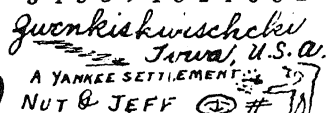 Zwenkiskwischcki
Iowa, U.S.A.
A YANKEE SETTLEMENT
NUT & JEFF #